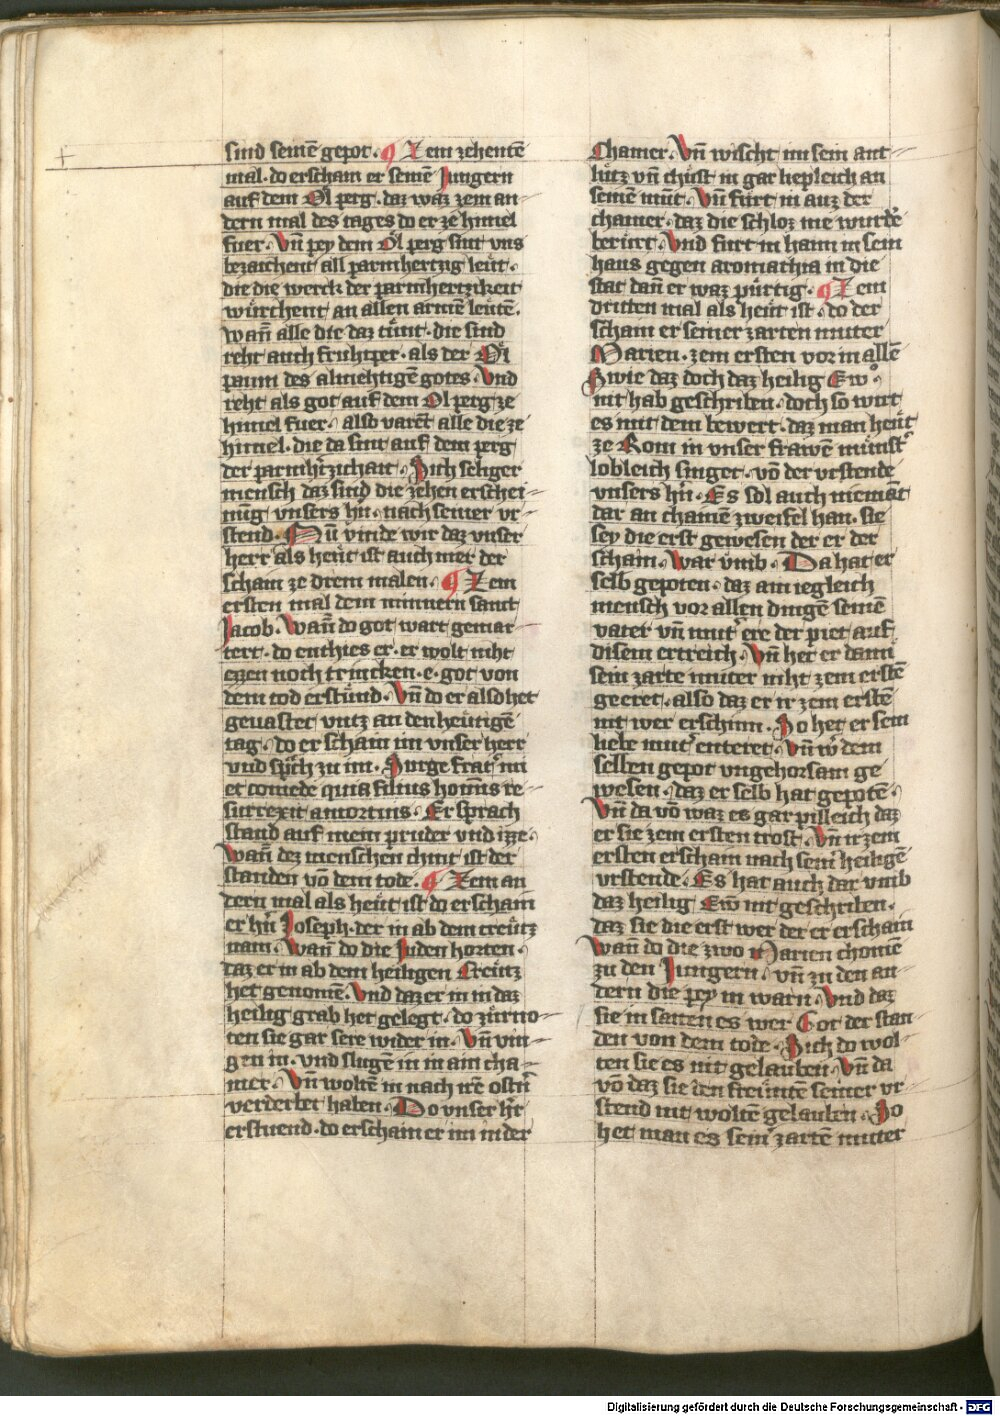 sind seinē gepot · ¶ Zem zehentē
mal · do erscham er seinē Jungern
auf dem Ol perg · daz waz zem an⸗
dern mal des tages do er ze himel
fuer · Vn̄ pey dem Öl perg sint vns
bezaichent all parmhertzig leüt ·
die die werck der parmhertzikeit
würchent an allen armē leütē ·
wan̄ alle die daz tünt · die sind
reht auch fruhtper · als der Öl
paum des almehtigē gotes · Vnd
reht als got auf dem Ol perg ze
himel fuer · also varēt alle die ze
himel · die da sint auf dem perg
der parmh͛zichait · Sich seliger
mensch daz sind die zehen erschei⸗
nūg vnsers hn̄ · nach seiner vr⸗
stend · Nū vinde wir daz vnser
herr als heüt ist auch mer der
scham ze drein malen · ¶ Zem
ersten mal dem minnern sant
Jacob · Wan̄ do got wart gemar⸗
tert · do enthies er · er wolt niht
ezzen noch trincken · e · got von
dem tod erstünd · Vn̄ do er also het
geuastet vntz an den heütigē
tag · do erscham im vnser herr
vnd sp͛ch zu im · Surge frat͛ mi
et comede quia filius homīs re⸗
surrexit amortuis · Er sprach
stand auf mein pruder vnd izze ·
Wan̄ dez menschen chint ist der
standen vō dem tode · ¶ Zem an
dern mal als heüt ist do erscham
er hn̄ Joseph · der in ab dem creütz
nam · Wan̄ do die Juden horten ·
daz er in ab dem heiligen Creütz
het genomē · Vnd daz er in in daz
heilig grab het gelegt · do zurno⸗
ten sie gar sere wider in · Vn̄ vin⸗
gen in · vnd slugē in in ain cha⸗
mer · Vn̄ woltē in nach irē ost͛n
verderbet haben · Do vnser h͛r
erstuend · do erscham er im in der
Chamer · Vn̄ wischt im sein ant⸗
lütz vn̄ chüst in gar liepleich an
seinē münt · Vn̄ fürt in auz der
chamer · daz die schloz nie wurdē
berürt · Vnd furt in haim in sein
haus gegen aromathia in die
stat dan̄ er waz pürtig · ¶ Zem
dritten mal als heüt ist · do der
scham er seiner zarten muter
Marien · zem ersten vor in allē
Swie daz doch daz heilig Ew͛
nit hab geschriben · doch so wirt
es mit dem bewert · daz man heüt
ze Rom in vnser frawē münst͛
lobleich singet · vō der vrstende
vnsers hn̄ · Es sol auch niemāt
dar an chainē zweifel han · sie
sey die erst gewesen der er der
scham · War vmb · Da hat er
selb gepoten · daz ain iegleich
mensch vor allen dingē seinē
vater vn̄ mut͛ ere der piet auf
disem ertreich · Vn̄ het er dann
sein zarte muter niht zem erstē
geeret · also daz er ir zem erstē
nit wer erschinn · So het er sein
liebe mut͛ enteret · Vn̄ w͛ dem
selben gepot vngehorsam ge
wesen · daz er selb hat gepotē ·
Vn̄ da vō waz es gar pilleich daz
er sie zem ersten trost · Vn̄ ir zem
ersten erscham nach sein͛ heiligē
vrstende · Es hat auch dar vmb
daz heilig Ew̄ nit geschriben ·
daz sie die erst wer der er erscham
Wan̄ do die zwo Marien chomē
zu den Jungern · vn̄ zu den an⸗
dern die pey in warn · Vnd daz
sie in saiten es wer Got der stan⸗
den von dem tode · Sich do wol⸗
ten sie es nit gelauben · Vn̄ da
vō daz sie den freünten seiner vr⸗
stend nit woltē gelauben · So
het man es sein͛ zartē muter
Digitalisierung gefördert durch die Deutsche Forschungsgemeinschaft - DFG